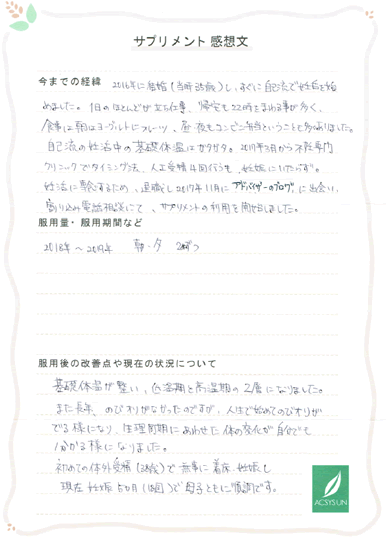 サプリメント 感想文
今までの経緯 2016年に結婚(当時35歳)し、すぐに自己流で妊活を始
めました。1日のほとんどが立ち仕事、帰宅も22時をまわる事が多く、
食事は朝はヨーグルトにフルーツ、昼・夜もコンビニ弁当ということも多々ありました。
自己流の妊活中の基礎体温はガタガタ。2017年2月から不妊専門
クリニックでタイミング法、人工受精4回行うも、妊娠にいたらず。
妊活に専念するため、退職し2017年11月にアドバイザーのブログに出会い、
電話相談にて、サプリメントの利用を開始しました。
服用量・服用期間など
2018年〜 朝・夕
服用後の改善点や現在の状況について
基礎体温が整い、低温期と高温期の2層になりました。
また長年、のびオリがなかったのですが、人生で始めてのびオリが
でる様になり、生理周期にあわせた体の変化が自分でも
分かる様になりました。
初めての体外受精(38歳)で無事に着床・妊娠し
現在妊娠5か月()で母子ともに順調です。
ACSYSUN